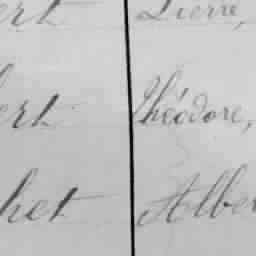 ert Pierre,
ert Théodore,
het Alber